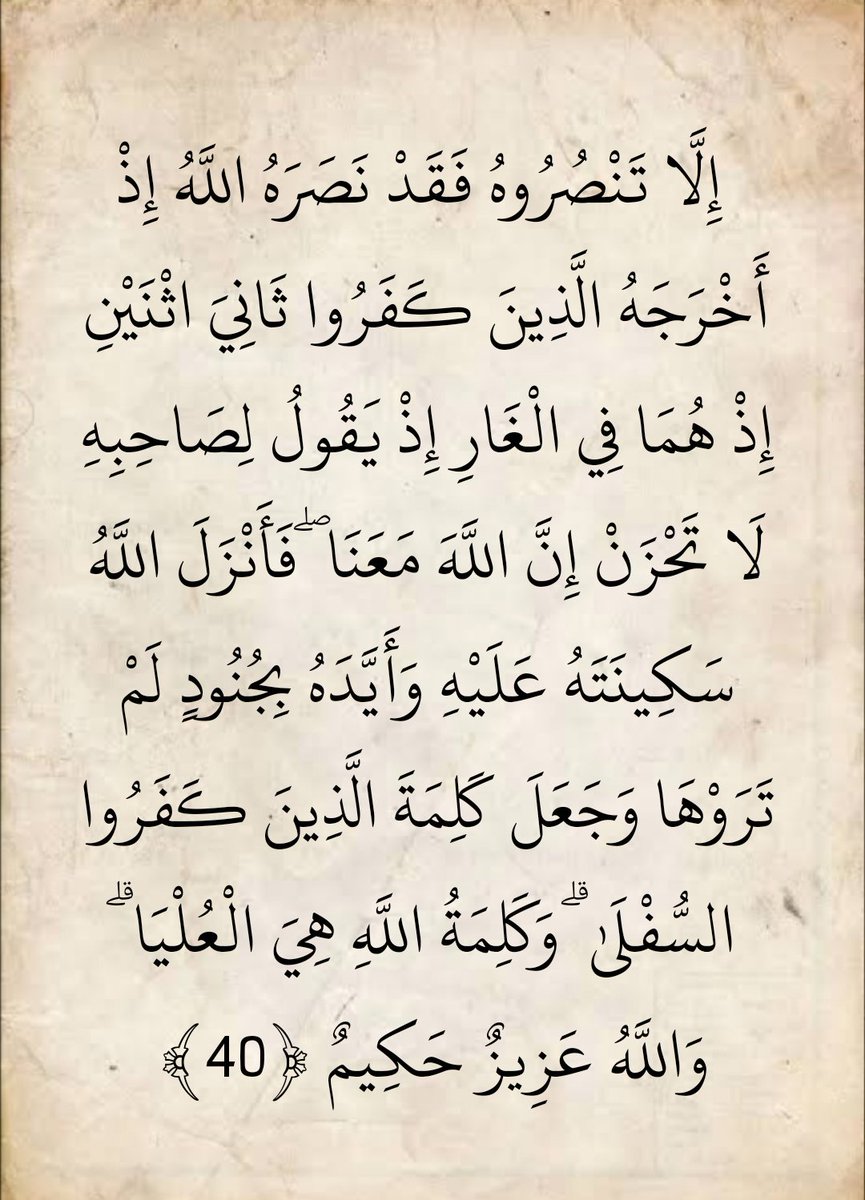 إِلَّا تَنْصُرُوهُ فَقَدْ نَصَرَهُ اللَّهُ إِذْ
أَخْرَجَهُ الَّذِينَ كَفَرُوا ثَانِيَ اثْنَيْنِ
إِذْ هُمَا فِي الْغَارِ إِذْ يَقُولُ لِصَاحِبِهِ
لَا تَحْزَنْ إِنَّ اللَّهَ مَعَنَا ۖ فَأَنْزَلَ اللَّهُ
سَكِينَتَهُ عَلَيْهِ وَأَيَّدَهُ بِجُنُودٍ لَمْ
تَرَوْهَا وَجَعَلَ كَلِمَةَ الَّذِينَ كَفَرُوا
السُّفْلَىٰ ۗ وَكَلِمَةُ اللَّهِ هِيَ الْعُلْيَا ۗ
وَاللَّهُ عَزِيزٌ حَكِيمٌ ﴿40﴾